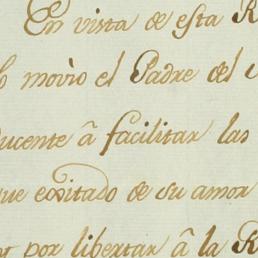 En vista de esta R
movió el Padre del
ducente â facilitar las
que exîtado de su amor
por libertar â la R